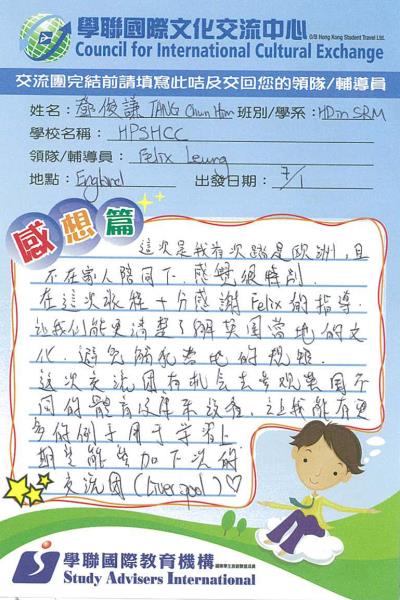 學聯國際文化交流中心
O/B Hong Kong Student Travel Ltd.
Council for International Cultural Exchange
交流團完結前請填寫此咭及交回您的領隊/輔導員
姓名：鄧俊謙 TANG Chun Him 班別/學系：HD in SRM
學校名稱：HPSHCC
領隊/輔導員：Felix Leung
地點：England 出發日期：7/1
感想篇
這次是我首次踏足歐洲，且
不在家人陪同下，感覺很特別
在這次旅程十分感謝Felix的指導
讓我們能更清楚了解英國當地的文
化，避免觸犯當地的規矩
這次交流團有機會去參觀英國不
同的體育及康樂設施，讓我能有更
多的例子用于學習上
期望能參加下次的
交流團 (Liverpool) ♡
學聯國際教育機構
Study Advisers International